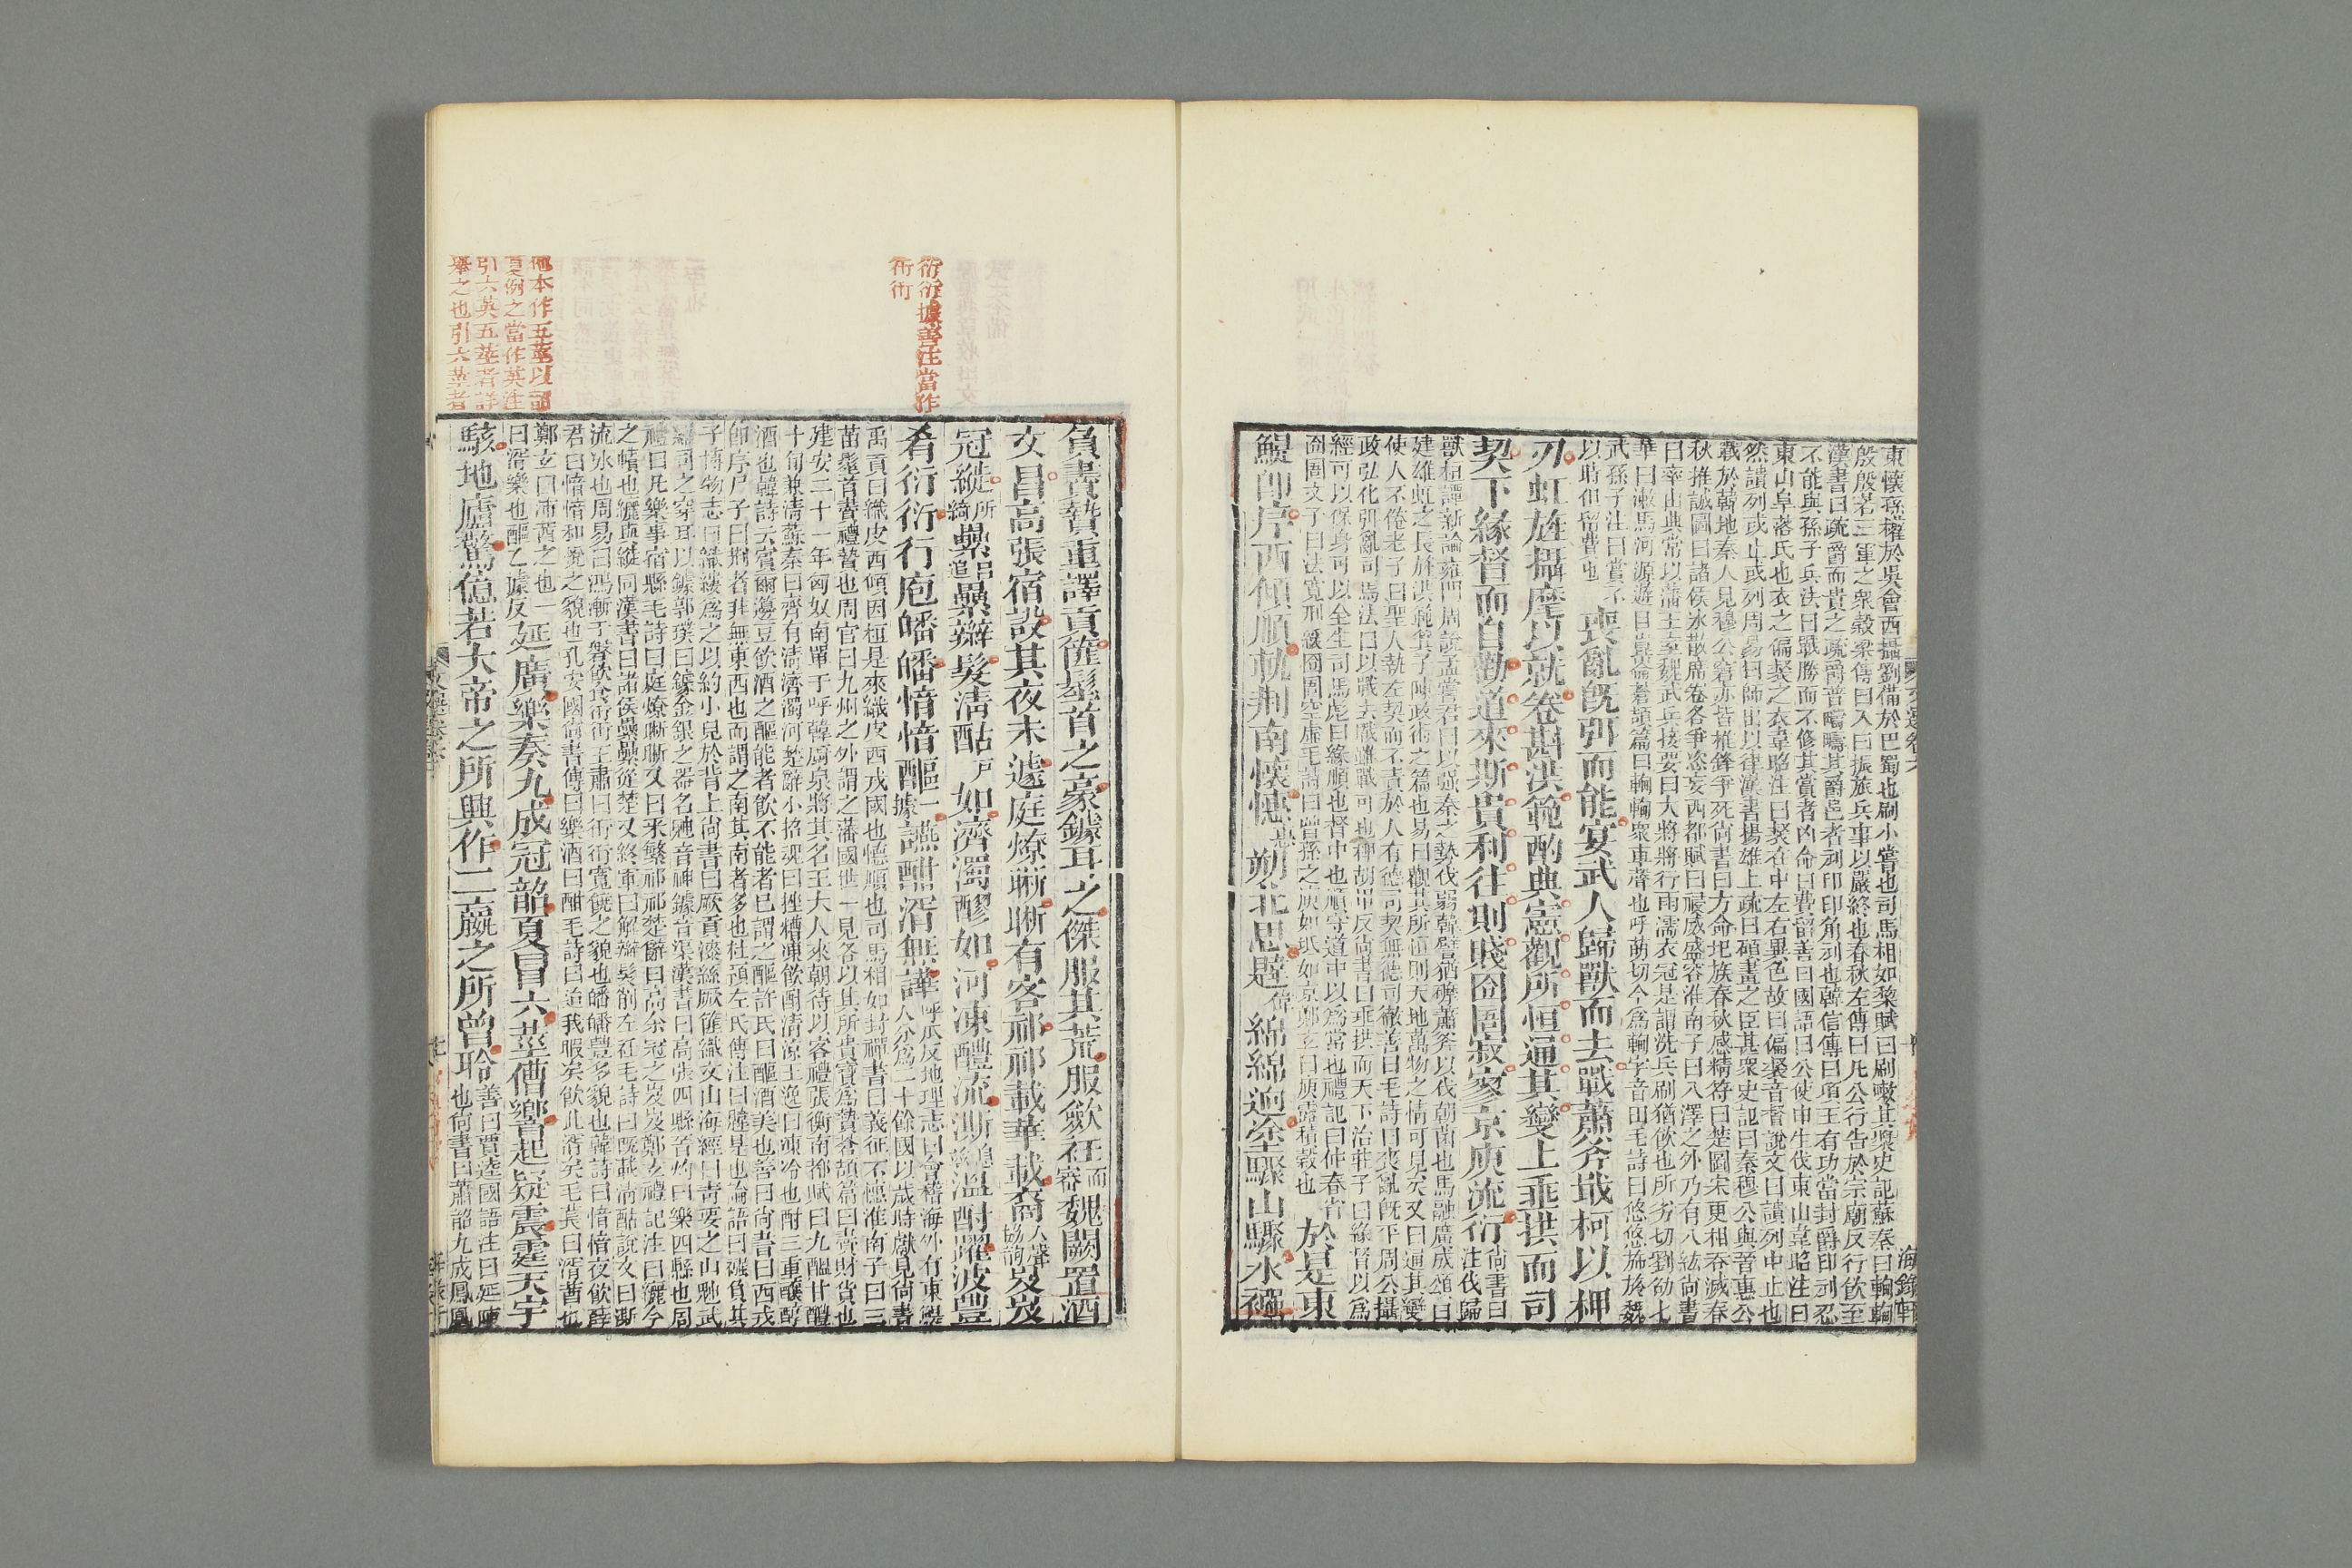 東懷孫權於吳會西攝劉備於巴蜀也刷小嘗也司馬相如棃賦曰刷嗽其漿史記蘇秦曰輷輷
殷殷若三軍之衆穀梁傳曰入曰振旅兵事以嚴終也春秋左傳曰凡公行告於宗廟反行飲至
漢書曰疏爵而貴之疏爵普疇疇其爵邑者刓印印角刓也韓信傳曰項王有功當封爵印刓忍
不能與孫子兵法曰戰勝而不修其賞者凶命曰費留善曰國語曰公使申生伐東山韋昭注曰
東山皐落氏也衣之偏裻之衣韋昭注曰裻在中左右異色故曰偏裻音督說文曰讀列中止也
然讀列或止或列周易曰師出以律漢書揚雄上疏曰碩畫之臣甚衆史記曰秦穆公與晉惠公
戰於韓地秦人見穆公窘亦皆推鋒爭死尙書曰方命圮族春秋感精符曰楚圍宋更相吞滅春
秋推誠圖曰諸侯冰散席卷各爭恣妄西都賦曰祲威盛容淮南子曰八澤之外乃有八紘尙書
曰率山典常以蕃王室魏武兵接要曰大將將行雨濡衣冠是謂洗兵刷猶飲也所劣切劉劭七
華曰漱馬河源遊目崑崙蒼頡篇曰輷輷衆車聲也呼萌切今爲輷字音田毛詩曰悠悠旆旌魏
武孫子注曰賞不
以時但留費也
喪亂旣弭而能宴武人歸獸而去戰蕭斧戢柯以柙
刃虹旌攝麾以就卷斟洪範酌典憲觀所恒通其變上垂拱而司
契下緣督而自勸道來斯貴利往則賤囹圄寂寥京庾流衍
尙書曰
注伐歸
獸桓譚新論雍門周說孟嘗君曰以強秦之勢伐弱韓譬猶礳蕭斧以伐朝菌也馬融廣成頌曰
建雄虹之長旌洪範箕子陳政術之篇也易曰觀其所恒則天地萬物之情可見矣又曰通其變
使人不倦老子曰聖人執左契而不責於人有德司契無德司徹善曰毛詩曰喪亂旣平周公攝
政弘化引亂司馬法曰以戰去戰雖戰可也柙胡甲反尙書曰垂拱而天下治莊子曰緣督以爲
經可以保身可以全生司馬彪曰緣順也督中也順守道中以爲常也禮記曰仲春省
囹圄文子曰法寬刑緩囹圄空虛毛詩曰曾孫之庾如坻如京鄭玄曰庾露積穀也
於是東
鯷卽序西傾順軌荆南懷憓惠朔北思韙偉綿綿迥塗驟山驟水襁
海錄軒
負責贄重譯貢篚髽首之豪鐻耳之傑服其荒服斂衽而審魏闕置酒
文昌高張宿設其夜未遽庭燎晣晣有客祁祁載華載裔入聲協韻岌岌
冠縰所綺纍呂追纍辮髮淸酤戶如濟濁醪如河凍醴流澌緦溫酎躍波豐
肴衍衍行庖皤皤愔愔醧一據讌酣湑無譁呼瓜反地理志曰會稽海外有東鯷
人分爲二十餘國以歲時獻見尙書
禹貢曰織皮西傾因桓是來織皮西戎國也憓順也司馬相如封禪書曰義征不憓淮南子曰三
苗髽首書禮贄也周官曰九州之外謂之蕃國世一見各以其所貴寶爲贄蒼頡篇曰責財貨也
建安二十一年匈奴南單于呼韓廚泉將其名王大人來朝待以客禮張衡南都賦曰九醞甘醴
十旬兼淸蘇秦曰齊有淸濟濁河楚辭小招魂曰挫糟凍飲酎淸涼王逸曰凍冷也酎三重釀醇
酒也韓詩云賓爾籩豆飲酒之醧能者飲不能者已謂之醧許氏曰醧酒美也善曰尙書曰西戎
卽序尸子曰荆者非無東西也而謂之南其南者多也杜預左氏傳注曰韙是也論語曰襁負其
子博物志曰織縷爲之以約小兒於背上尙書曰厥貢漆絲厥篚織文山海經曰靑要之山䰠武
羅司之穿耳以鐻郭璞曰鐻金銀之器名䰠音神鐻音渠漢書曰高張四縣音灼曰樂四縣也周
禮曰凡樂事宿縣毛詩曰庭燎晣晣又曰采蘩祁祁楚辭曰高余冠之岌岌鄭玄禮記注曰纚今
之幘也纚與縰同漢書曰諸侯纍纍從楚又終軍曰解辮髮削左衽毛詩曰旣載淸酤說文曰澌
流冰也周易曰鴻漸于磐飲食衎衎王肅曰衎衎寬饒之貌也皤皤豐多貌也韓詩曰愔愔夜飲薛
君曰愔愔和悅之貌也孔安國尙書傳曰樂酒曰酣毛詩曰迨我暇矣飲此湑矣毛萇曰湑莤也
鄭玄曰沛莤之也一
曰湑樂也醧乙據反
延廣樂奏九成冠韶夏冒六莖傮響起疑震霆天宇
駭地廬驚億若大帝之所興作二嬴之所曾聆
善曰賈逵國語注曰延陳
也尙書曰蕭韶九成鳳凰
衍衍據善注當作
衎衎
他本作五莖以韶
夏例之當作英注
引六英五莖者詳
舉之也引六莖者